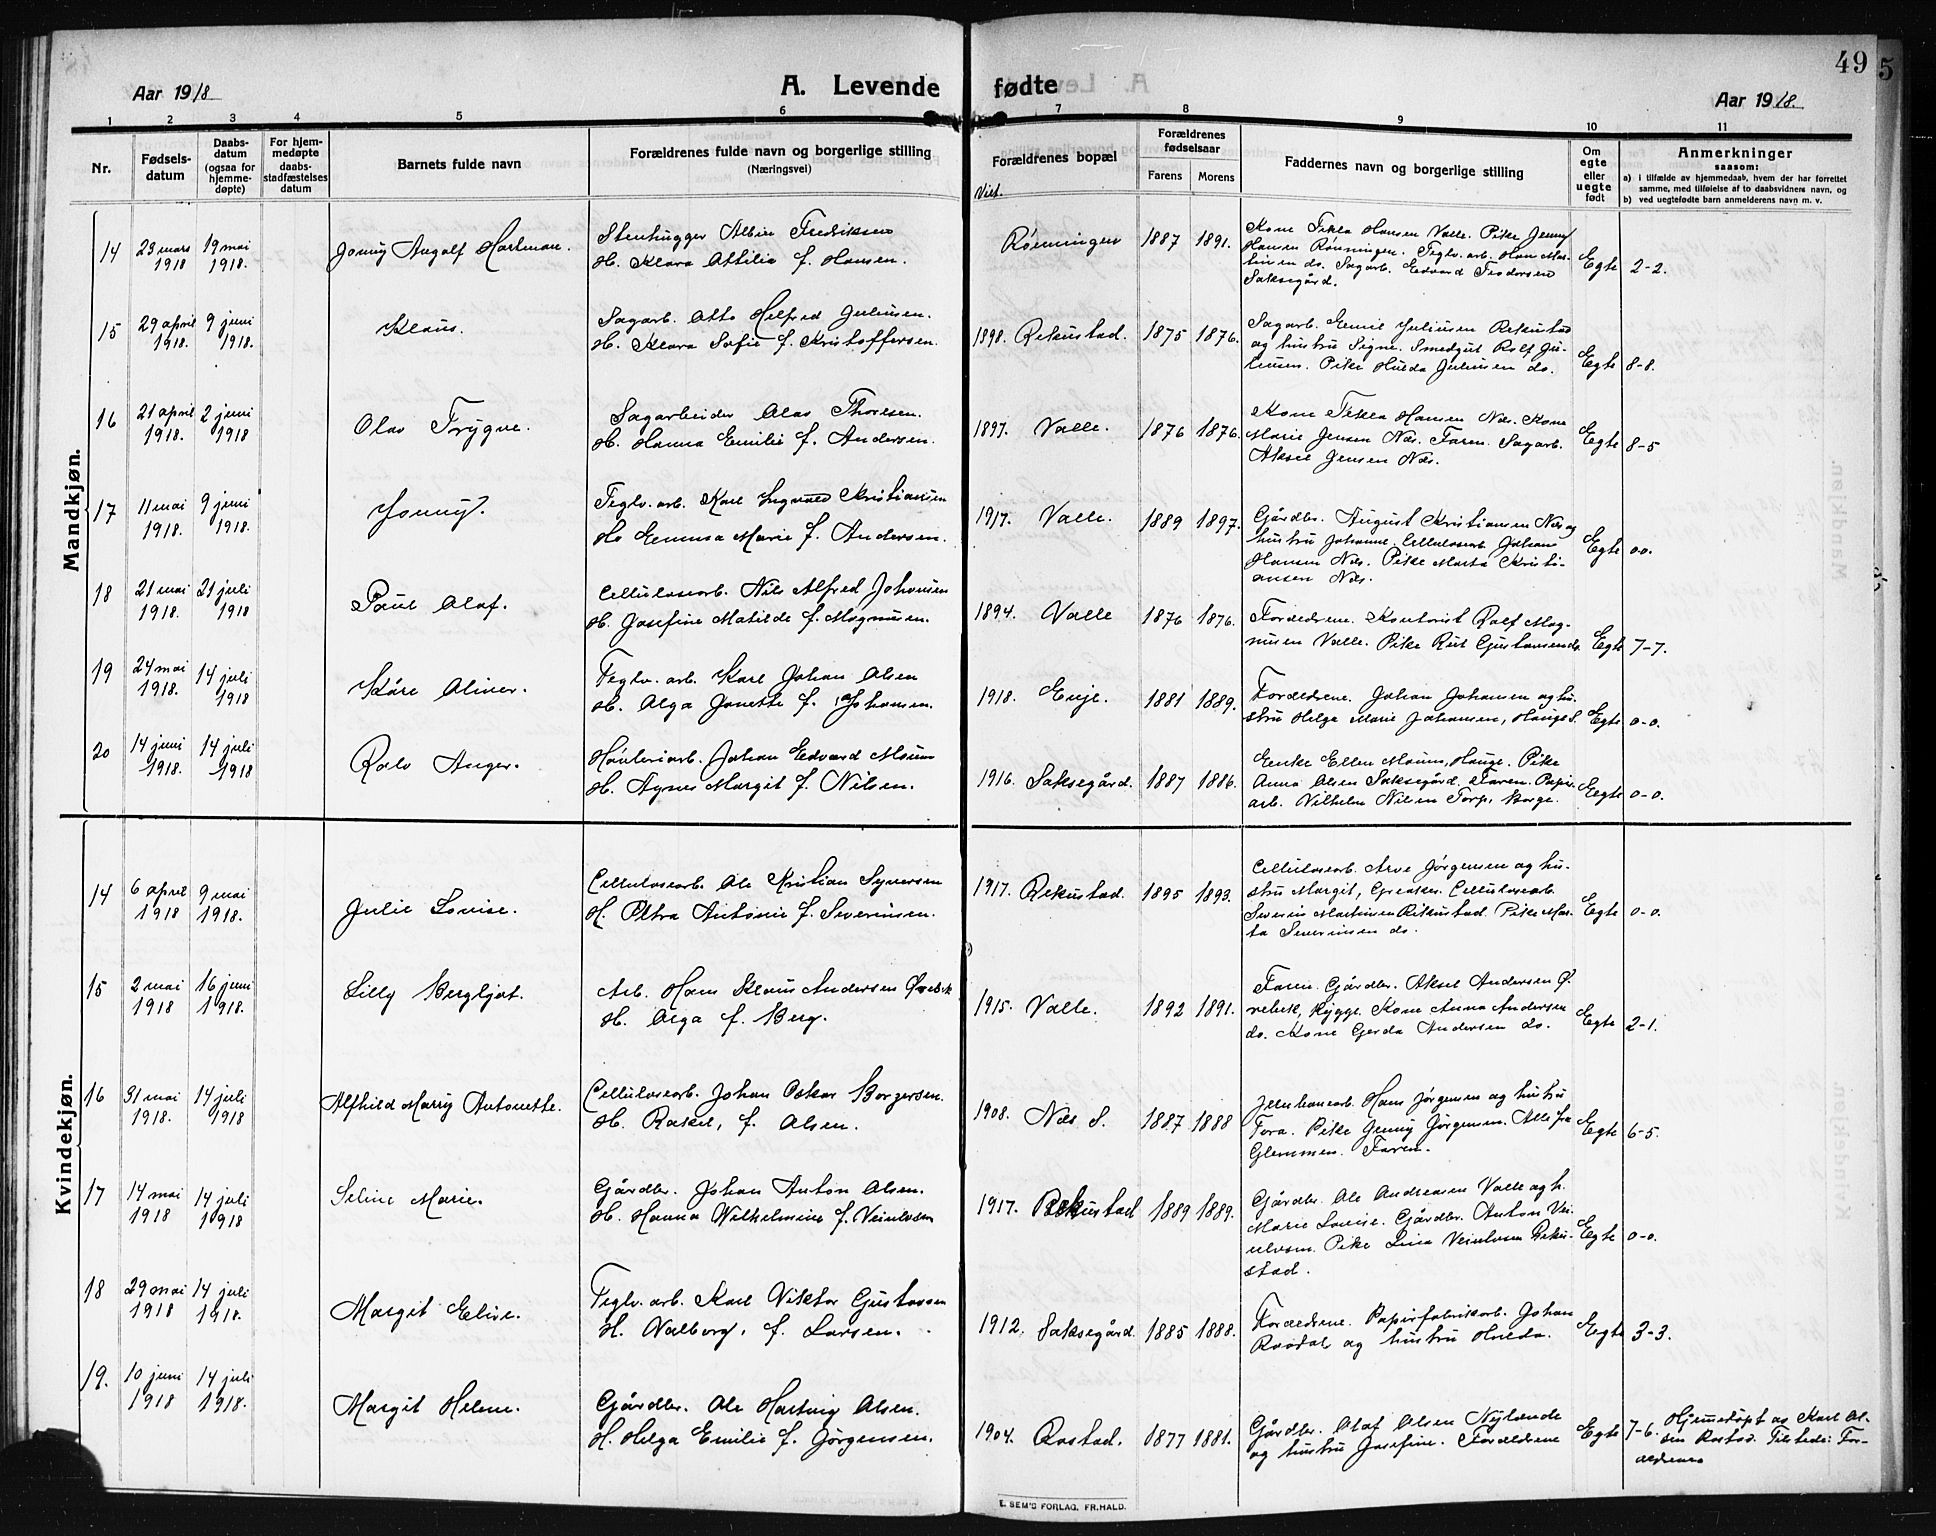 49
5
Aar 1918
A. Levende fødte
Aar 1918.
1 2 3 4 5 6 7 8 9 10 11
Nr.
Fødsels-
datum
Daabs-
datum
(ogsaa for
hjemme-
døpte)
For hjem-
medøpte
daabs-
stadfæstelses
datum
Barnets fulde navn
Forældrenes fulde navn og borgerlige stilling
(Næringsvei)
Forældrenes bopæl
Viet.
Forældrenes
fødselsaar
Farens Morens
Faddernes navn og borgerlige stilling
Om
egte
eller
uegte
født
Anmerkninger
saasom:
a) i tilfælde av hjemmedaab, hvem der har forrettet
samme, med tilføielse af to daabsvidners navn, og
b) ved uegtefødte barn anmelderens navn m. v.
Mandkjøn.
14 23 mars 1918 19 mai 1918. Jonny Angolf Hartman.
Stenhugger Albin Fredriksen
H. Klara Attilia f. Hansen.
Rönningen 1887 1891.
Kone Tekla Hansen Valle. Pike Jenny
Hansen Rönningen. Teglv. arb. Hans Mar-
tinsen do. Sagarb. Edvard Fredersen
Saksegård.
Egte 2-2.
15 29 april 1918. 9 juni 1918. Klaus.
Sagarb. Otto Helfred Juliusen.
H. Klara Sofie f. Kristoffersen.
1898. Rekustad. 1875 1876.
Sagarb. Emil Juliusen Rekustad
og hustru Signe. Smedgut Rolf Ju-
liusen. Pike Hulda Juliusen do.
Egte 8-8.
16 21 april 1918. 2 juni 1918 Olav Trygve.
Sagarbeider Olav Thoresen.
H. Hanna Emilie f. Andersen.
1897. Valle. 1876 1876.
Kone Tekla Hansen Næs. Kone
Marie Jensen Næs. Faren. Sagarb.
Aksel Jensen Næs.
Egte 8-5
17 11 mai 1918. 9 juni 1918. Yonny.
Teglv. arb. Karl Ingvald Kristiansen
H. Emma Marie f. Andersen.
1917. Valle. 1889 1897.
Gårdbr. August Kristiansen Næs og
hustru Johanne. Cellulosearb. Johan
Hansen Næs. Pike Marta Kristi-
ansen Næs.
Egte 0-0.
18 21 mai 1918. 21 juli 1918 Paul Olaf.
Cellulosearb. Nils Alfred Johansen
H. Josefine Matilde f. Magnusen.
1894. Valle 1876 1876.
Forældrene. Kontorist Rolf Mag-
nusen Valle. Pike Rut Gustavsen do.
Egte 7-7.
19 24 mai 1918. 14 juli 1918 Kåre Oliver.
Teglv. arb. Karl Johan Olsen
H. Olga Jonette f. Johansen.
1918. Enje. 1881 1889.
Forældrene. Johan Johansen og hu-
stru Helga Marie Johansen, Hauge S.
Egte 0-0.
20 14 juni 1918. 14 juli 1918 Rolv Anger.
Høvleriarb. Johan Edvard Moum
H. Agnes Margit f. Nilsen.
1916. Saksegård. 1887 1886.
Enke Ellen Moum, Hauge. Pike
Anna Olsen Saksegård. Faren. Papir-
arb. Vilhelm Nilsen Torp, Borge.
Egte 0-0.
Kvindekjøn.
14 6 april 1918 9 mai 1918. Julie Lovise.
Cellulosearb. Ole Kristian Syversen
H. Petra Antonie f. Severinsen.
1917. Rekustad. 1895 1893.
Cellulosearb. Arve Jørgensen og hu-
stru Margit, Greaker. Cellulosearb.
Severin Martinsen Rekustad. Pike Mar-
ta Severinsen do.
Egte 0-0.
15 2 mai 1918 16 juni 1918. Lilly Bergljot.
Arb. Hans Klaus Andersen Ørebek
H. Olga f. Berg.
1915. Valle. 1892 1891.
Faren. Gårdbr. Aksel Andersen Ø-
rebek, Rygge. Kone Anna Andersen
do. Kone Gerda Andersen do.
Egte 2-1.
16 31 mai 1918. 14 juli 1918 Alfhild Marry Antonette.
Cellulosearb. Johan Oskar Borgersen.
H. Rakel, f. Olsen.
1908. Næs S. 1887 1888
Jernbanearb. Hans Jørgensen og hustru
Tora. Pike Jenny Jørgensen. Alle fra
Glemmen. Faren.
Egte 6-5.
17 14 mai 1918. 14 juli 1918 Seline Marie.
Gårdbr. Johan Anton Olsen.
H. Hanna Wilhelmine f. Veinlvsen
1917. Rekustad 1889 1889.
Gårdbr. Ole Andreasen Valle og h.
Marie Lovise. Gårdbr. Anton Vei-
nlvsen. Pike Lina Veinlvsen Reku-
stad.
Egte 0-0.
18 29 mai 1918 14 juli 1918. Margit Elive.
Teglv. arb. Karl Viktor Gustavsen
H. Valborg, f. Larsen.
1912. Saksegård. 1885 1888.
Forældrene. Papirfabrikarb. Johan
Roodal og hustru Hulda.
Egte 3-3.
19. 10 juni 1918 14 juli 1918. Margit Helene.
Gårdbr. Ole Hartvig Olsen.
H. Helga Emilie f. Jørgensen.
1904. Rostad. 1877 1881.
Gårdbr. Olaf Olsen Nylænde
og hustru Josefine. Forældrene
Egte 7-6.
Hjemmedøpt av Karl Ol-
sen Rostad. Tilstede: For-
ældrene
E. SEM'S FORLAG, FR.HALD.